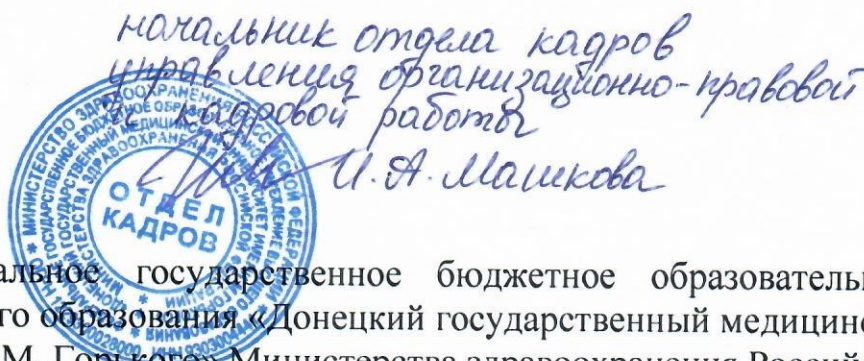 начальник отдела кадров
управления организационно-правовой
и кадровой работы
И.А. Машкова
ОТДЕЛ
КАДРОВ
альное государственное бюджетное образовательн
го образования «Донецкий государственный медицинс
М. Горького» Министерства здравоохранения Росси